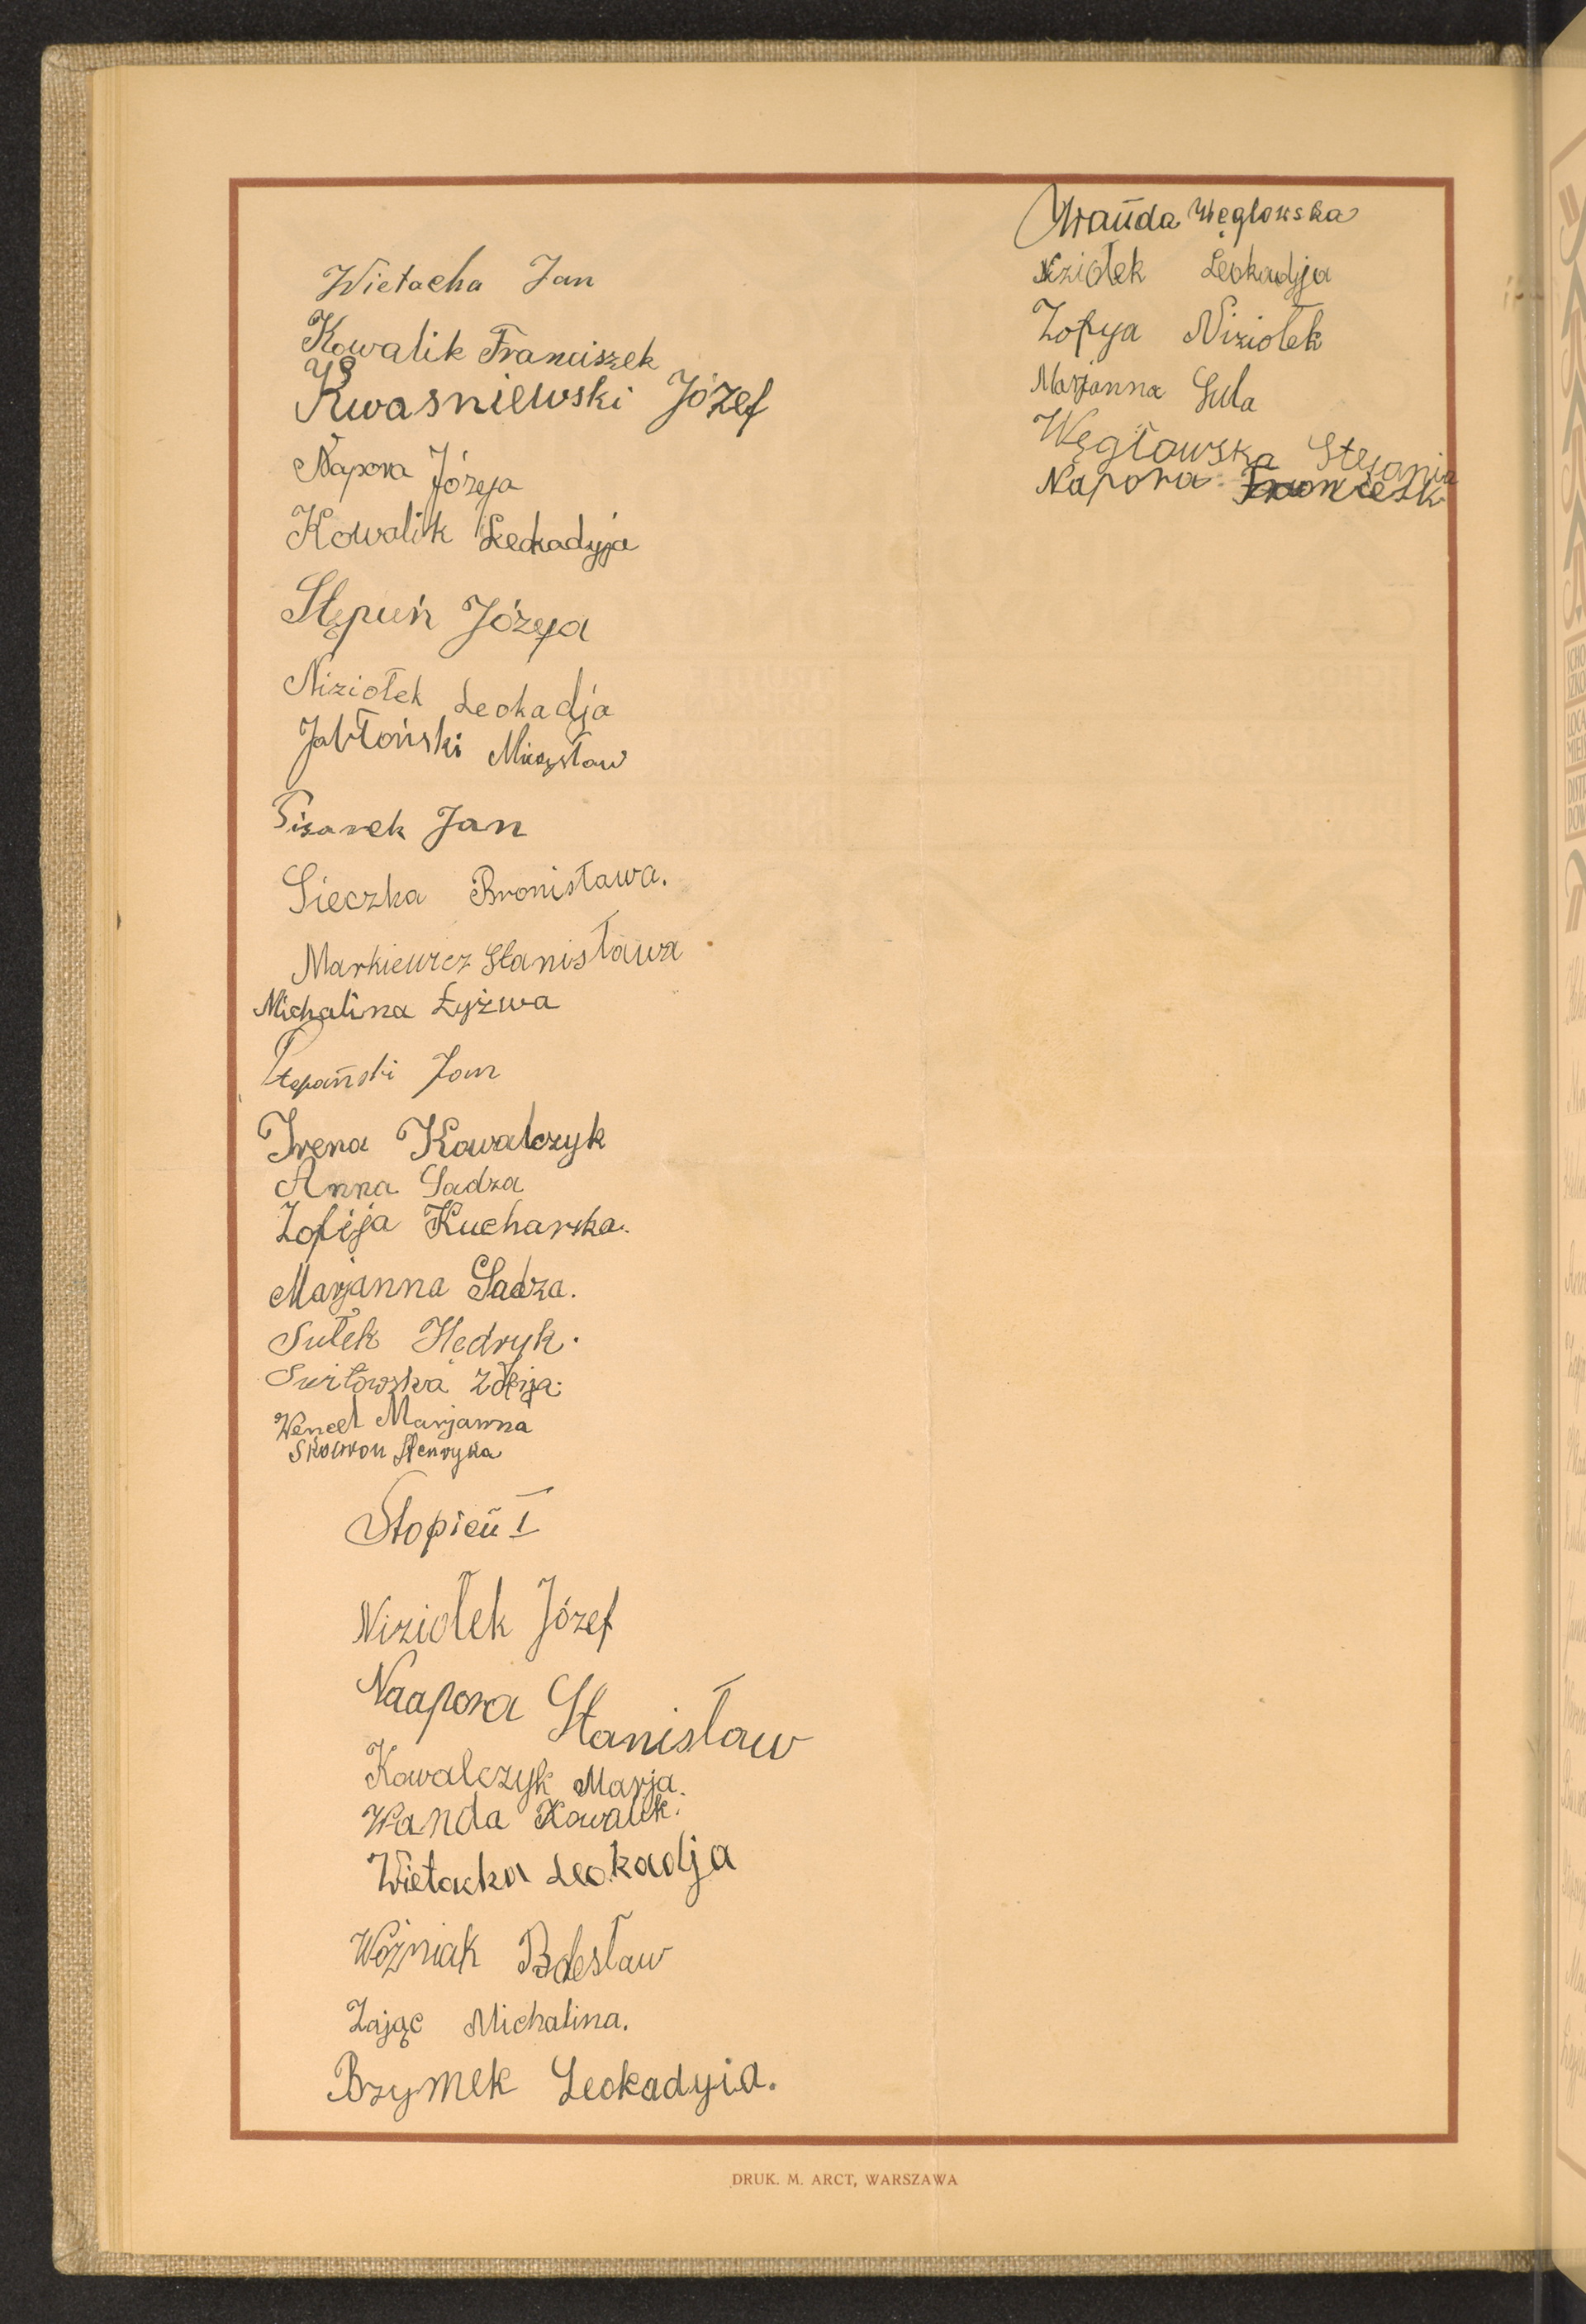 Wietacha Jan
Kowalik Franciszek
Kwasniewski Józef
Napora Józefa
Kowalik Leokadyja
Stępuń Józefa
Niziołek Leokadja
Jabłoński Mieczysław
Pisarek Jan
Sieczka Bronisława.
Markiewicz Stanisława
Michalina Łyżwa
Stepański Jan
Irena Kowalczyk
Anna Sadza
Zofija Kucharska.
Marjanna Sadza.
Sułek Hędryk.
Zofija.
Wencel Marjanna
Skowron Henryka
Stopień I
Niziołek Józef
Naapora Stanisław
Kowalczyk Marja.
Wanda Kowalik.
Wietacha Leokadja
Woźniak Bolesław
Zając Michalina.
Brzymek Leokadyia.
Wańda Węglowska
Niziołek Leokadyja
Zofya Niziołek
Marjanna Gula
Węgłowska Stefania
Napora Franciszk
DRUK. M. ARCT, WARSZAWA